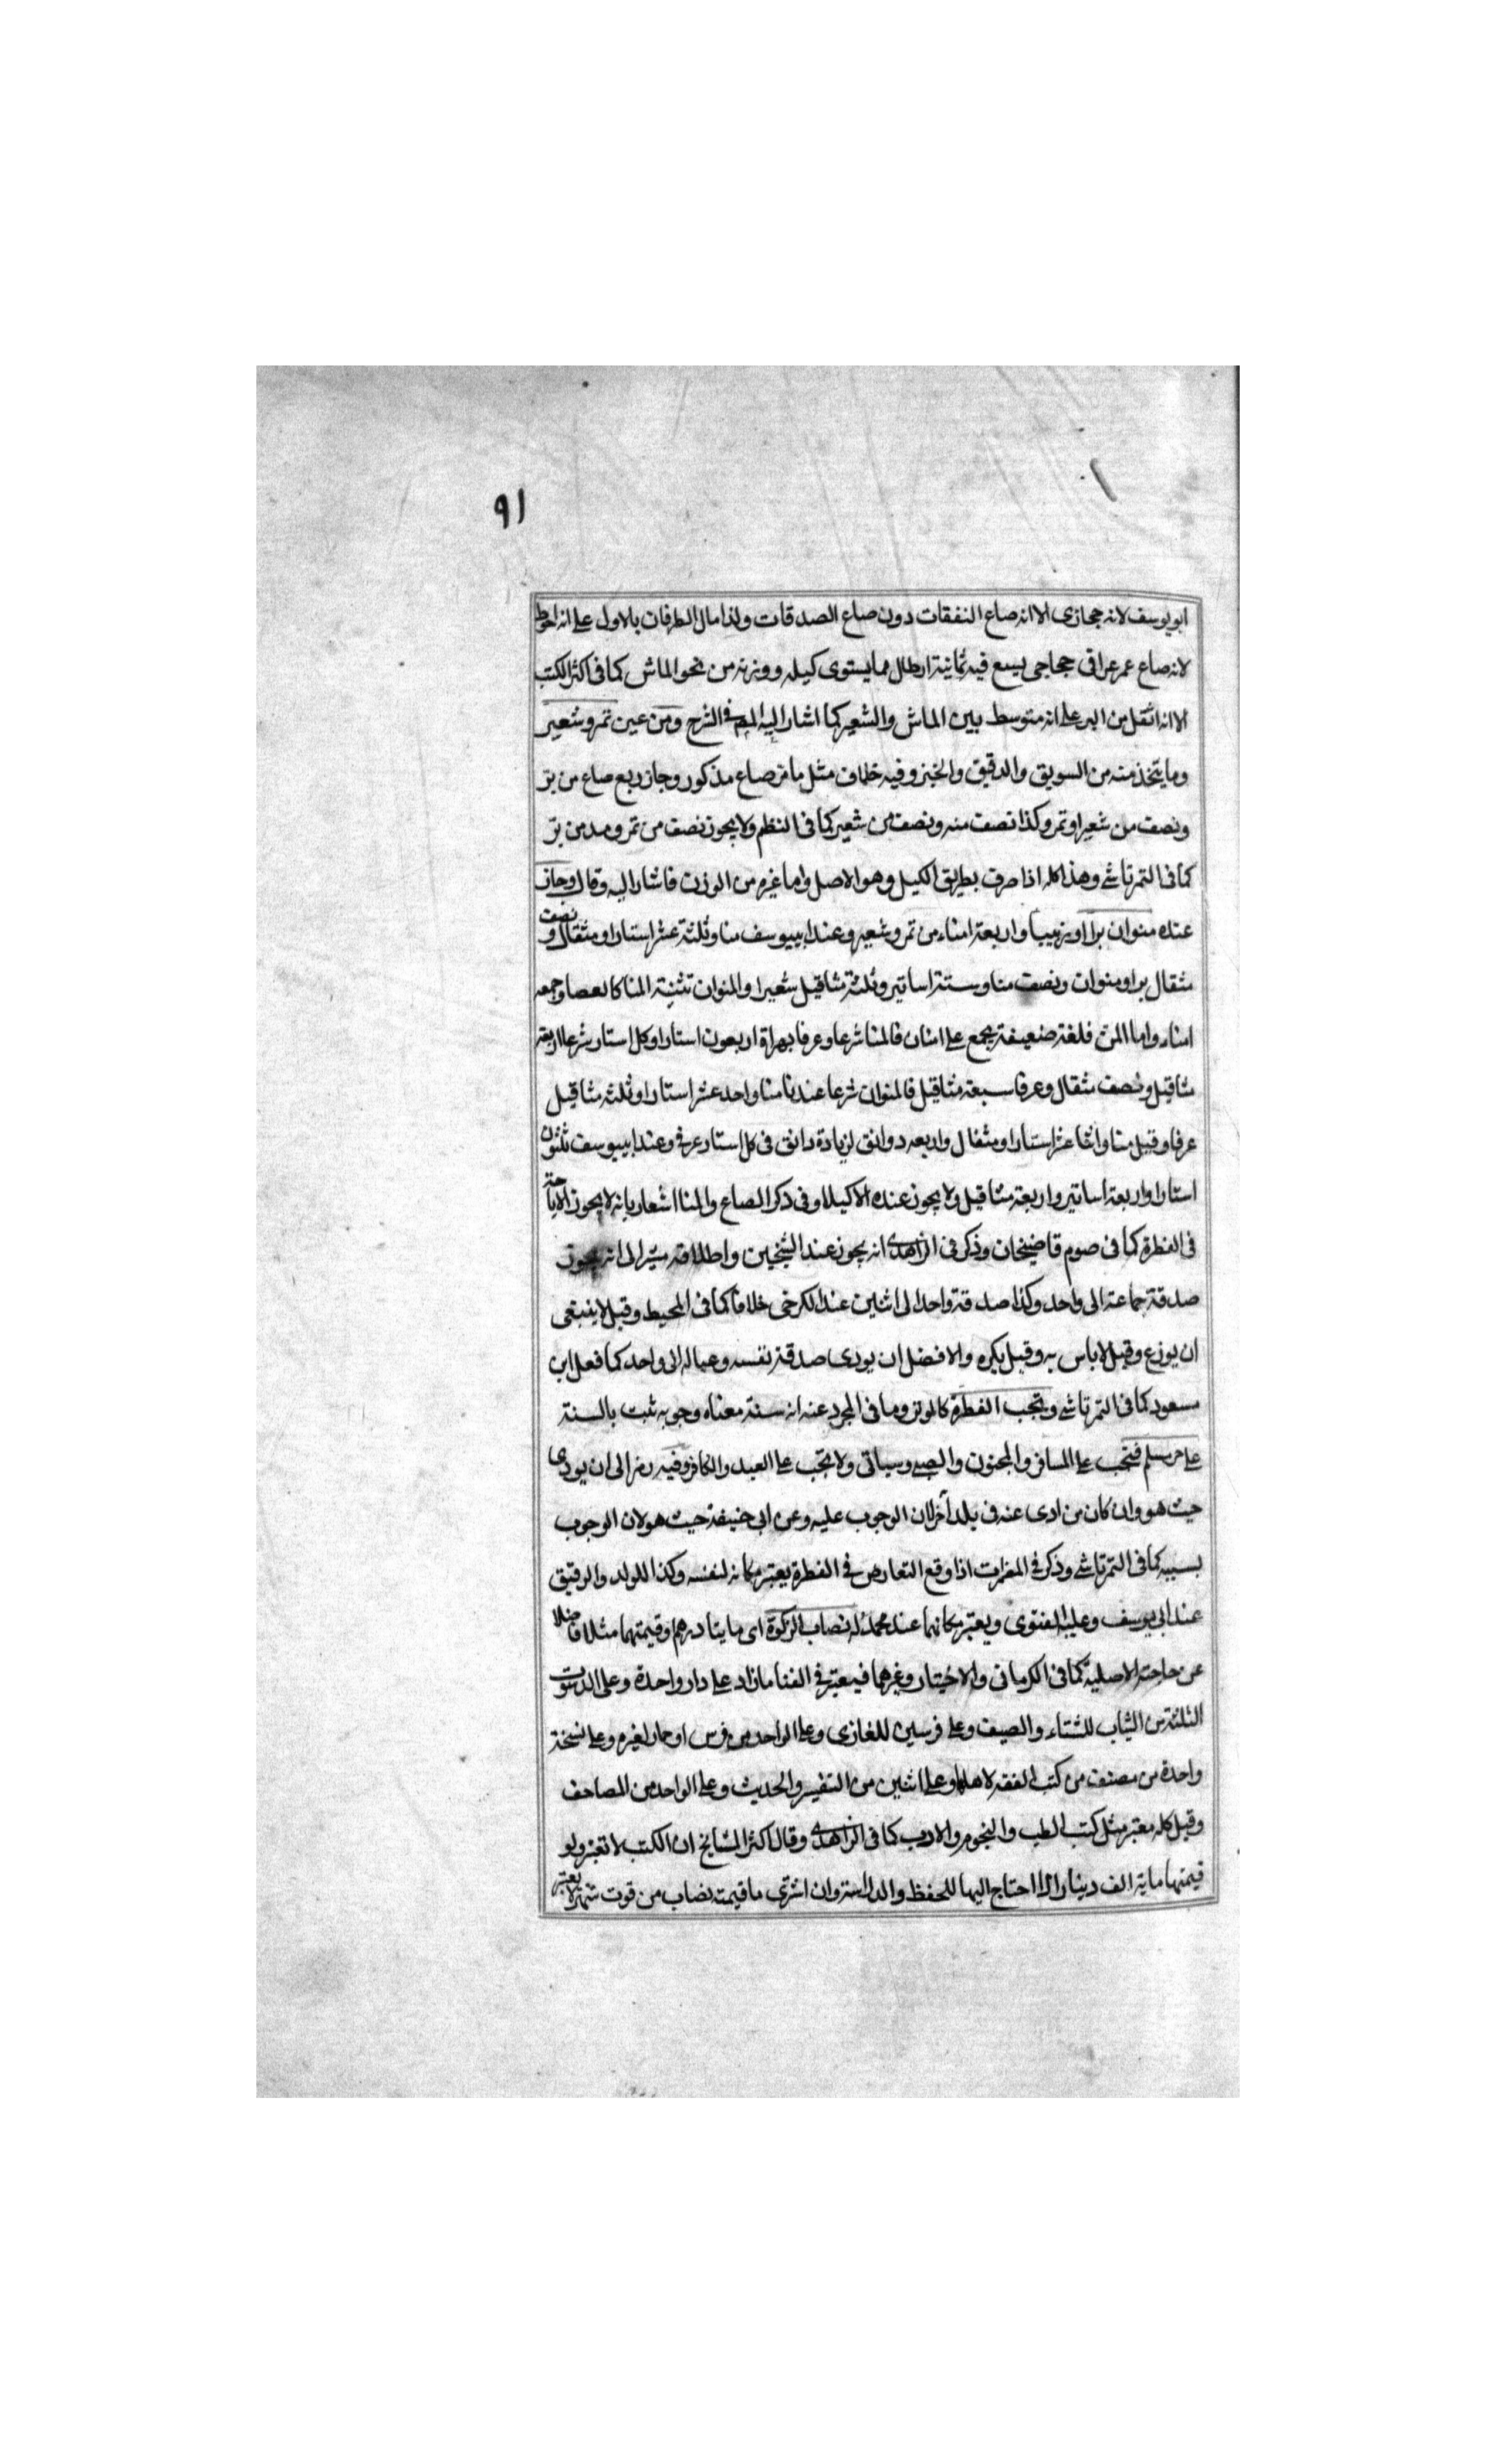 ٩١
ابو يوسف لانه حجازى الا انه صاع النفقات دون صاع الصدقات ولذا مال الطرفان بالاول على انه احوط
لانه صاع عمر عراقى حجاجى يسع فيه ثمانية ارطال مما يستوى كيله ووزنه من نحو الماش كما فى اكثر الكتب
الا انه اثقل من البر على انه متوسط بين الماش والشعير كما اشار اليه المص فى الشرح ومن عين تمر وشعير
وما يتخذ منه من السويق والدقيق والخبز وفيه خلاف مثل ما مر صاع مذكور وجاز ربع صاع من بر
ونصف من شعير او تمر وكذا نصف منه ونصف من شعير كما فى النظم ولا يجوز نصف من تمر ومد من بر
كما فى التمرتاشى وهذا كله اذا صرف بطريق الكيل وهو الاصل واما غيره من الوزن فاشار اليه وقال وجاز
عنده منوان برا او زبيبا واربعة امناء من تمر وشعير وعند ابييوسف منا وثلثة عشر استارا ومثقال ونصف
مثقال برا ومنوان ونصف منا وستة اساتير وثلثة مثاقيل شعيرا والمنوان تثنية المنا كالعصا وجمعه
امناء واما المن فلغة ضعيفة يجمع على امنان فالمنا شرعا وعرفا بهراة اربعون استارا وكل استار شرعا اربعة
مثاقيل ونصف مثقال وعرفا سبعة مثاقيل فالمنوان شرعا عندنا منا واحد عشر استارا وثلثة مثاقيل
عرفا وقيل منا واثنا عشر استارا ومثقال واربعه دوانق لزيادة دانق فى كل استار عرفى وعند ابييوسف ثلثون
استارا واربعة اساتير واربعة مثاقيل ولا يجوز عنده الا كيلا وفى ذكر الصاع والمنا اشعار بانه لا يجوز الاباحة
فى الفطرة كما فى صوم قاضيخان وذكر فى الزاهدى انه يجوز عند الشيخين واطلاقه مشير الى انه يجوز
صدقة جماعة الى واحد وكذا صدقة واحد الى اثنين عند الكرخى خلافا كما فى المحيط وقيل لا ينبغى
ان يوزع وقيل لا باس به وقيل يكره والافضل ان يودى صدقة نفسه وعياله الى واحد كما فعل ابن
مسعود كما فى التمرتاشى وتجب الفطرة كالوتر وما فى المجرد عنه انه سنة معناه وجوبه ثبت بالسنة
على حر مسلم فتجب على المسافر والمجنون والصبى وسياتى ولا تجب على العبد والكافر وفيه رمز الى ان يودى
حيث هو وان كان من ادى عنه فى بلد آخر لان الوجوب عليه وعن ابى حنيفة حيث هو لان الوجوب
بسببه كما فى التمرتاشى وذكر فى المضمرات اذا وقع التعارض فى الفطرة يعتبر مكانه لنفسه وكذا للولد والرقيق
عند ابى يوسف وعليه الفتوى ويعتبر مكانهما عند محمد له نصاب الزكوة اى مايتا درهم وقيمتهما مثلا فاضلا
عن حاجته الاصلية كما فى الكرمانى والاختيار وغيرهما فيعتبر فى الغنا ما زاد على دار واحدة وعلى الدستوت
الثلثة من الثياب للشتاء والصيف وعلى فرسين للغازى وعلى الواحد من فرس او حمار لغيره وعلى نسخة
واحدة من مصنف من كتب الفقه لاهلها وعلى اثنين من التفسير والحديث وعلى الواحد من المصاحف
وقيل كله معتبر مثل كتب الطب والنجوم والادب كما فى الزاهدى وقال اكثر المشايخ ان الكتب لا تعتبر ولو
قيمتها ماية الف دينار اذا احتاج اليها للحفظ والدراسة وان اشترى ما قيمته نصاب من قوت شهر لا يعتبر